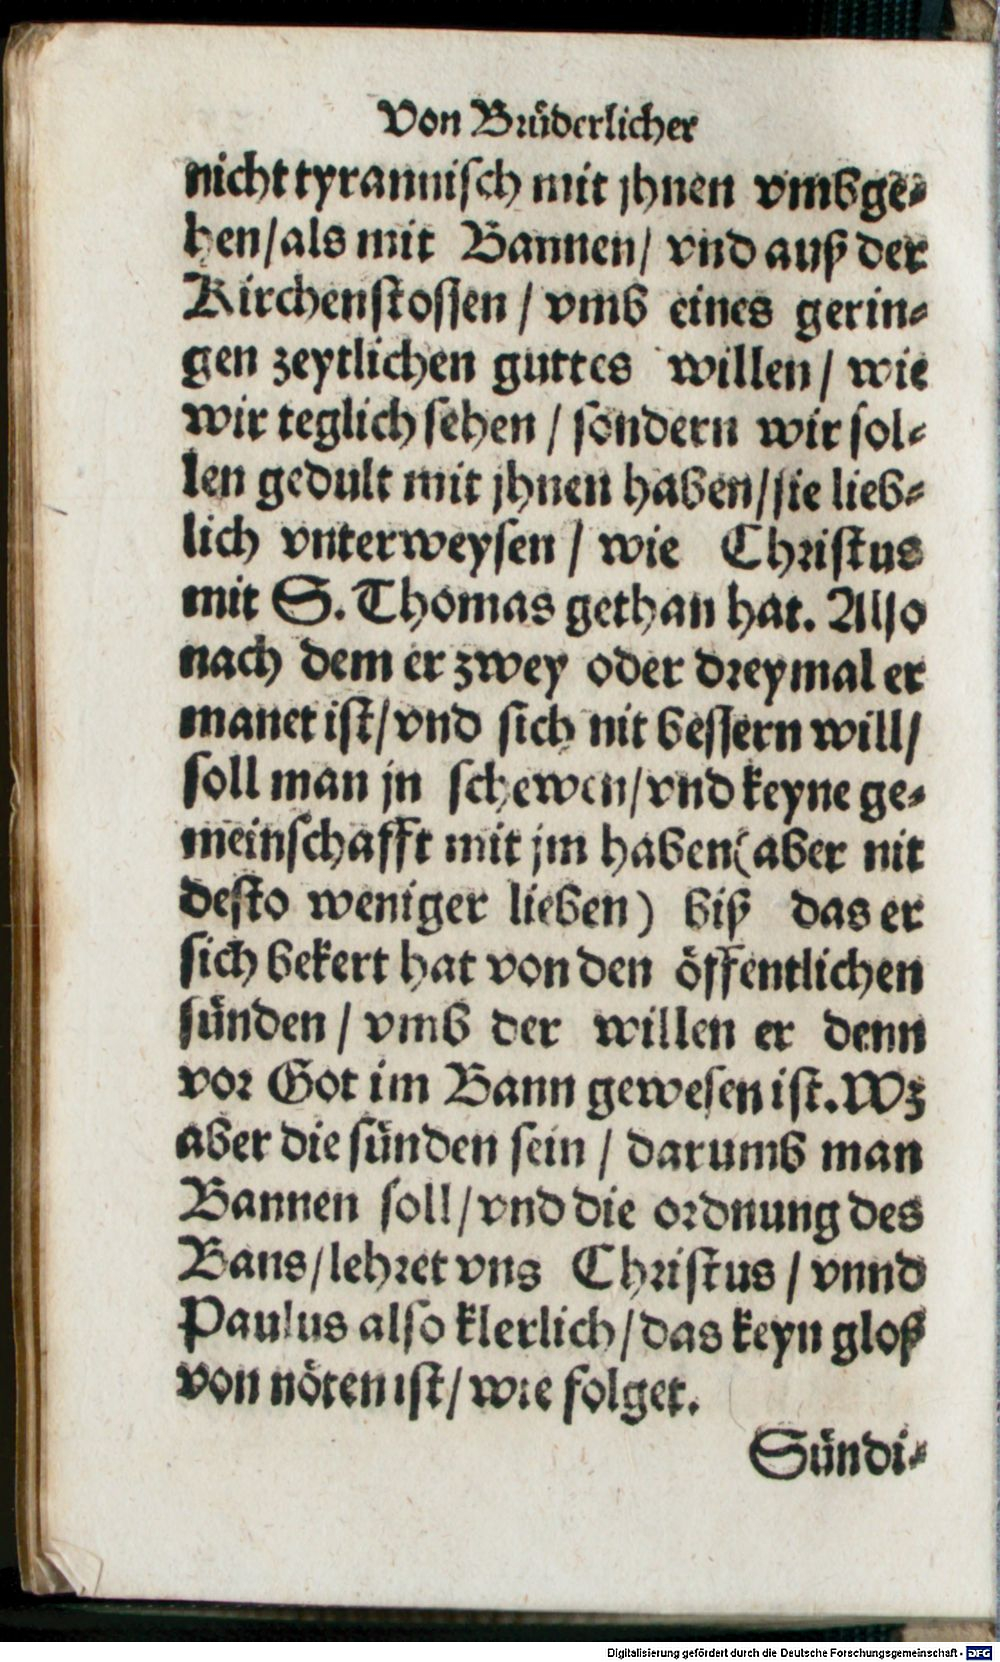 Von Brüderlicher
nicht tyrannisch mit jhnen vmbge-
hen/als mit Bannen/ vnd auß der
Kirchenstossen / vmb eines gerin-
gen zeytlichen guttes willen / wie
wir teglich sehen / sondern wir sol-
len gedult mit jhnen haben/sie lieb-
lich vnterweysen / wie Christus
mit S. Thomas gethan hat. Also
nach dem er zwey oder dreymal er
manet ist/vnd sich nit bessern will/
soll man jn schewen/vnd keyne ge-
meinschafft mit jm haben(aber nit
desto weniger lieben) biß das er
sich bekert hat von den öffentlichen
sünden / vmb der willen er denn
vor Got im Bann gewesen ist. Wz
aber die sünden sein / darumb man
Bannen soll/vnd die ordnung des
Bans/lehret vns Christus / vnnd
Paulus also klerlich/das keyn gloß
von nöten ist/ wie folget.
Sündi-
Digitalisierung gefördert durch die Deutsche Forschungsgemeinschaft - DFG